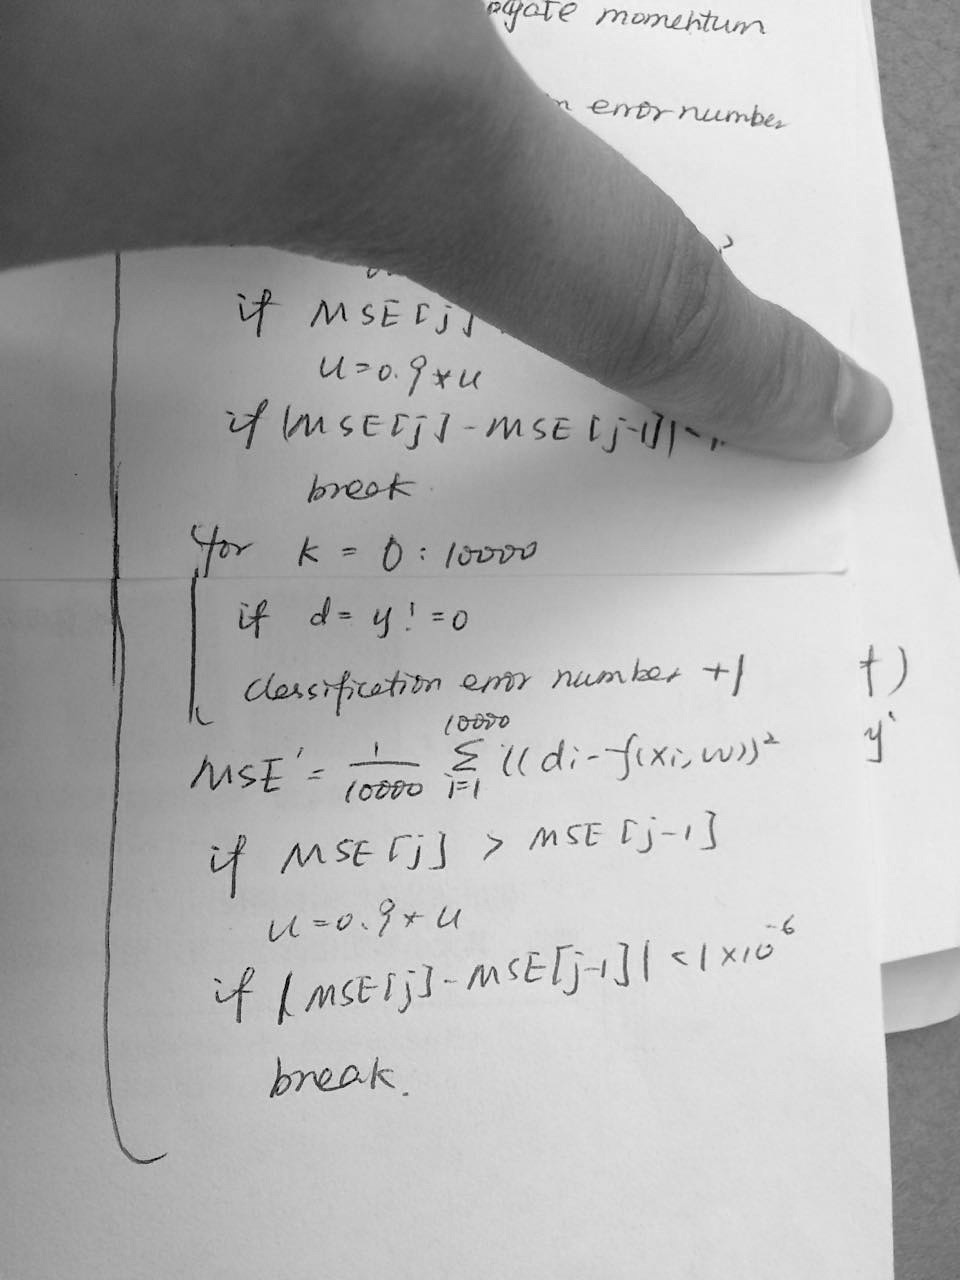 momentum
error number
if MSE[j]
u=0.9*u
if |MSE[j]-MSE[j-1]|<
break
for k = 0 : 10000
if d= y!=0
classification error number +1
t)
y'
MSE' = 1/10000 10000Σi=1 ((di-f(xi,w))²
if MSE[j] > MSE[j-1]
u=0.9*u
if |MSE[j]-MSE[j-1]| <1×10⁻⁶
break.